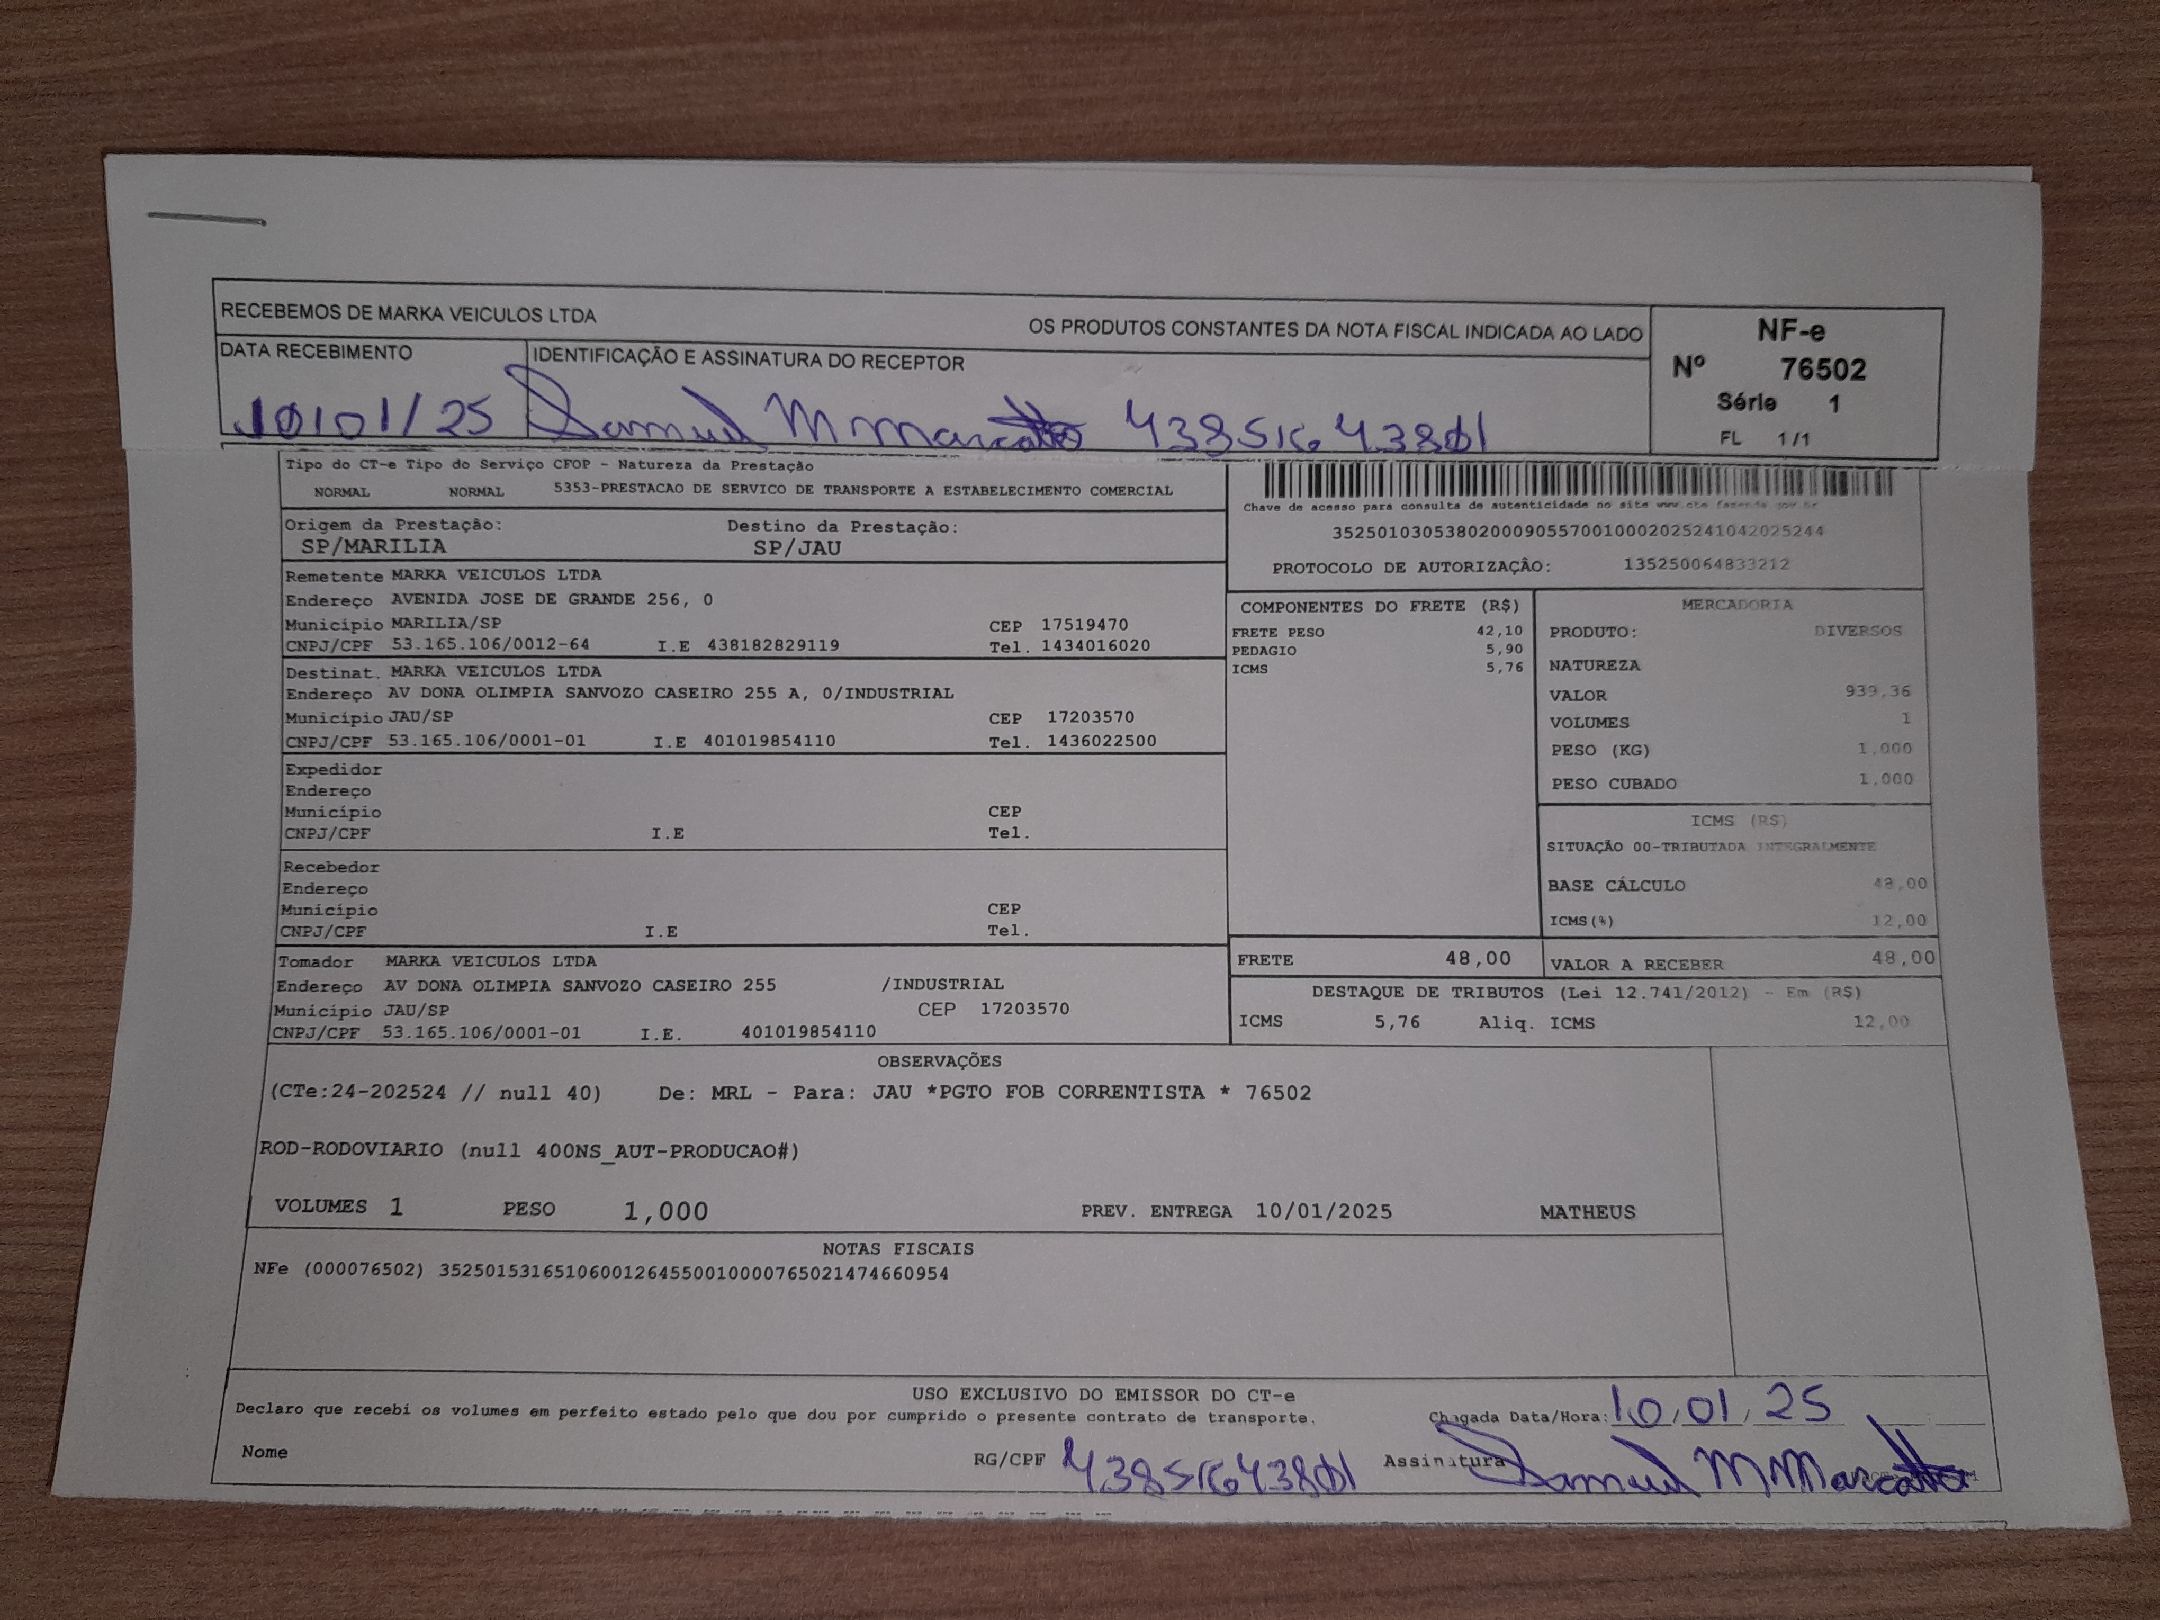 RECEBEMOS DE MARKA VEICULOS LTDA OS PRODUTOS CONSTANTES DA NOTA FISCAL INDICADA AO LADO
NF-e
Nº 76502
Série 1
FL 1/1
DATA RECEBIMENTO IDENTIFICAÇÃO E ASSINATURA DO RECEPTOR
10/01/25 Samuel M Marcatto
Tipo do CT-e Tipo do Serviço CFOP - Natureza da Prestação
NORMAL NORMAL 5353-PRESTACAO DE SERVICO DE TRANSPORTE A ESTABELECIMENTO COMERCIAL
Chave de acesso para consulta de autenticidade no site www.cte.fazenda.gov.br
35250103053802000905570010002025241042025244
PROTOCOLO DE AUTORIZAÇÂO: 135250064833212
Origem da Prestação: Destino da Prestação:
SP/MARILIA SP/JAU
Remetente MARKA VEICULOS LTDA
Endereço AVENIDA JOSE DE GRANDE 256, 0
Município MARILIA/SP CEP 17519470
CNPJ/CPF 53.165.106/0012-64 I.E 438182829119 Tel. 1434016020
Destinat. MARKA VEICULOS LTDA
Endereço AV DONA OLIMPIA SANVOZO CASEIRO 255 A, 0/INDUSTRIAL
Município JAU/SP CEP 17203570
CNPJ/CPF 53.165.106/0001-01 I.E 401019854110 Tel. 1436022500
Expedidor
Endereço
Município CEP
CNPJ/CPF I.E Tel.
Recebedor
Endereço
Município CEP
CNPJ/CPF I.E Tel.
Tomador MARKA VEICULOS LTDA
Endereço AV DONA OLIMPIA SANVOZO CASEIRO 255 /INDUSTRIAL
Município JAU/SP CEP 17203570
CNPJ/CPF 53.165.106/0001-01 I.E. 401019854110
COMPONENTES DO FRETE (R$)
FRETE PESO 42,10
PEDAGIO 5,90
ICMS 5,76
MERCADORIA
PRODUTO: DIVERSOS
NATUREZA
VALOR 939,36
VOLUMES 1
PESO (KG) 1,000
PESO CUBADO 1,000
ICMS (R$)
SITUAÇÃO 00-TRIBUTADA INTEGRALMENTE
BASE CÁLCULO 48,00
ICMS(%) 12,00
FRETE 48,00 VALOR A RECEBER 48,00
DESTAQUE DE TRIBUTOS (Lei 12.741/2012) - Em (R$)
ICMS 5,76 Aliq. ICMS 12,00
OBSERVAÇÕES
(CTe:24-202524 // null 40) De: MRL - Para: JAU *PGTO FOB CORRENTISTA * 76502
ROD-RODOVIARIO (null 400NS_AUT-PRODUCAO#)
VOLUMES 1 PESO 1,000 PREV. ENTREGA 10/01/2025 MATHEUS
NOTAS FISCAIS
NFe (000076502) 35250153165106001264550010000765021474660954
USO EXCLUSIVO DO EMISSOR DO CT-e
Declaro que recebi os volumes em perfeito estado pelo que dou por cumprido o presente contrato de transporte. Chegada Data/Hora: 10/01/25
Nome RG/CPF Assinatura Samuel M Marcatto